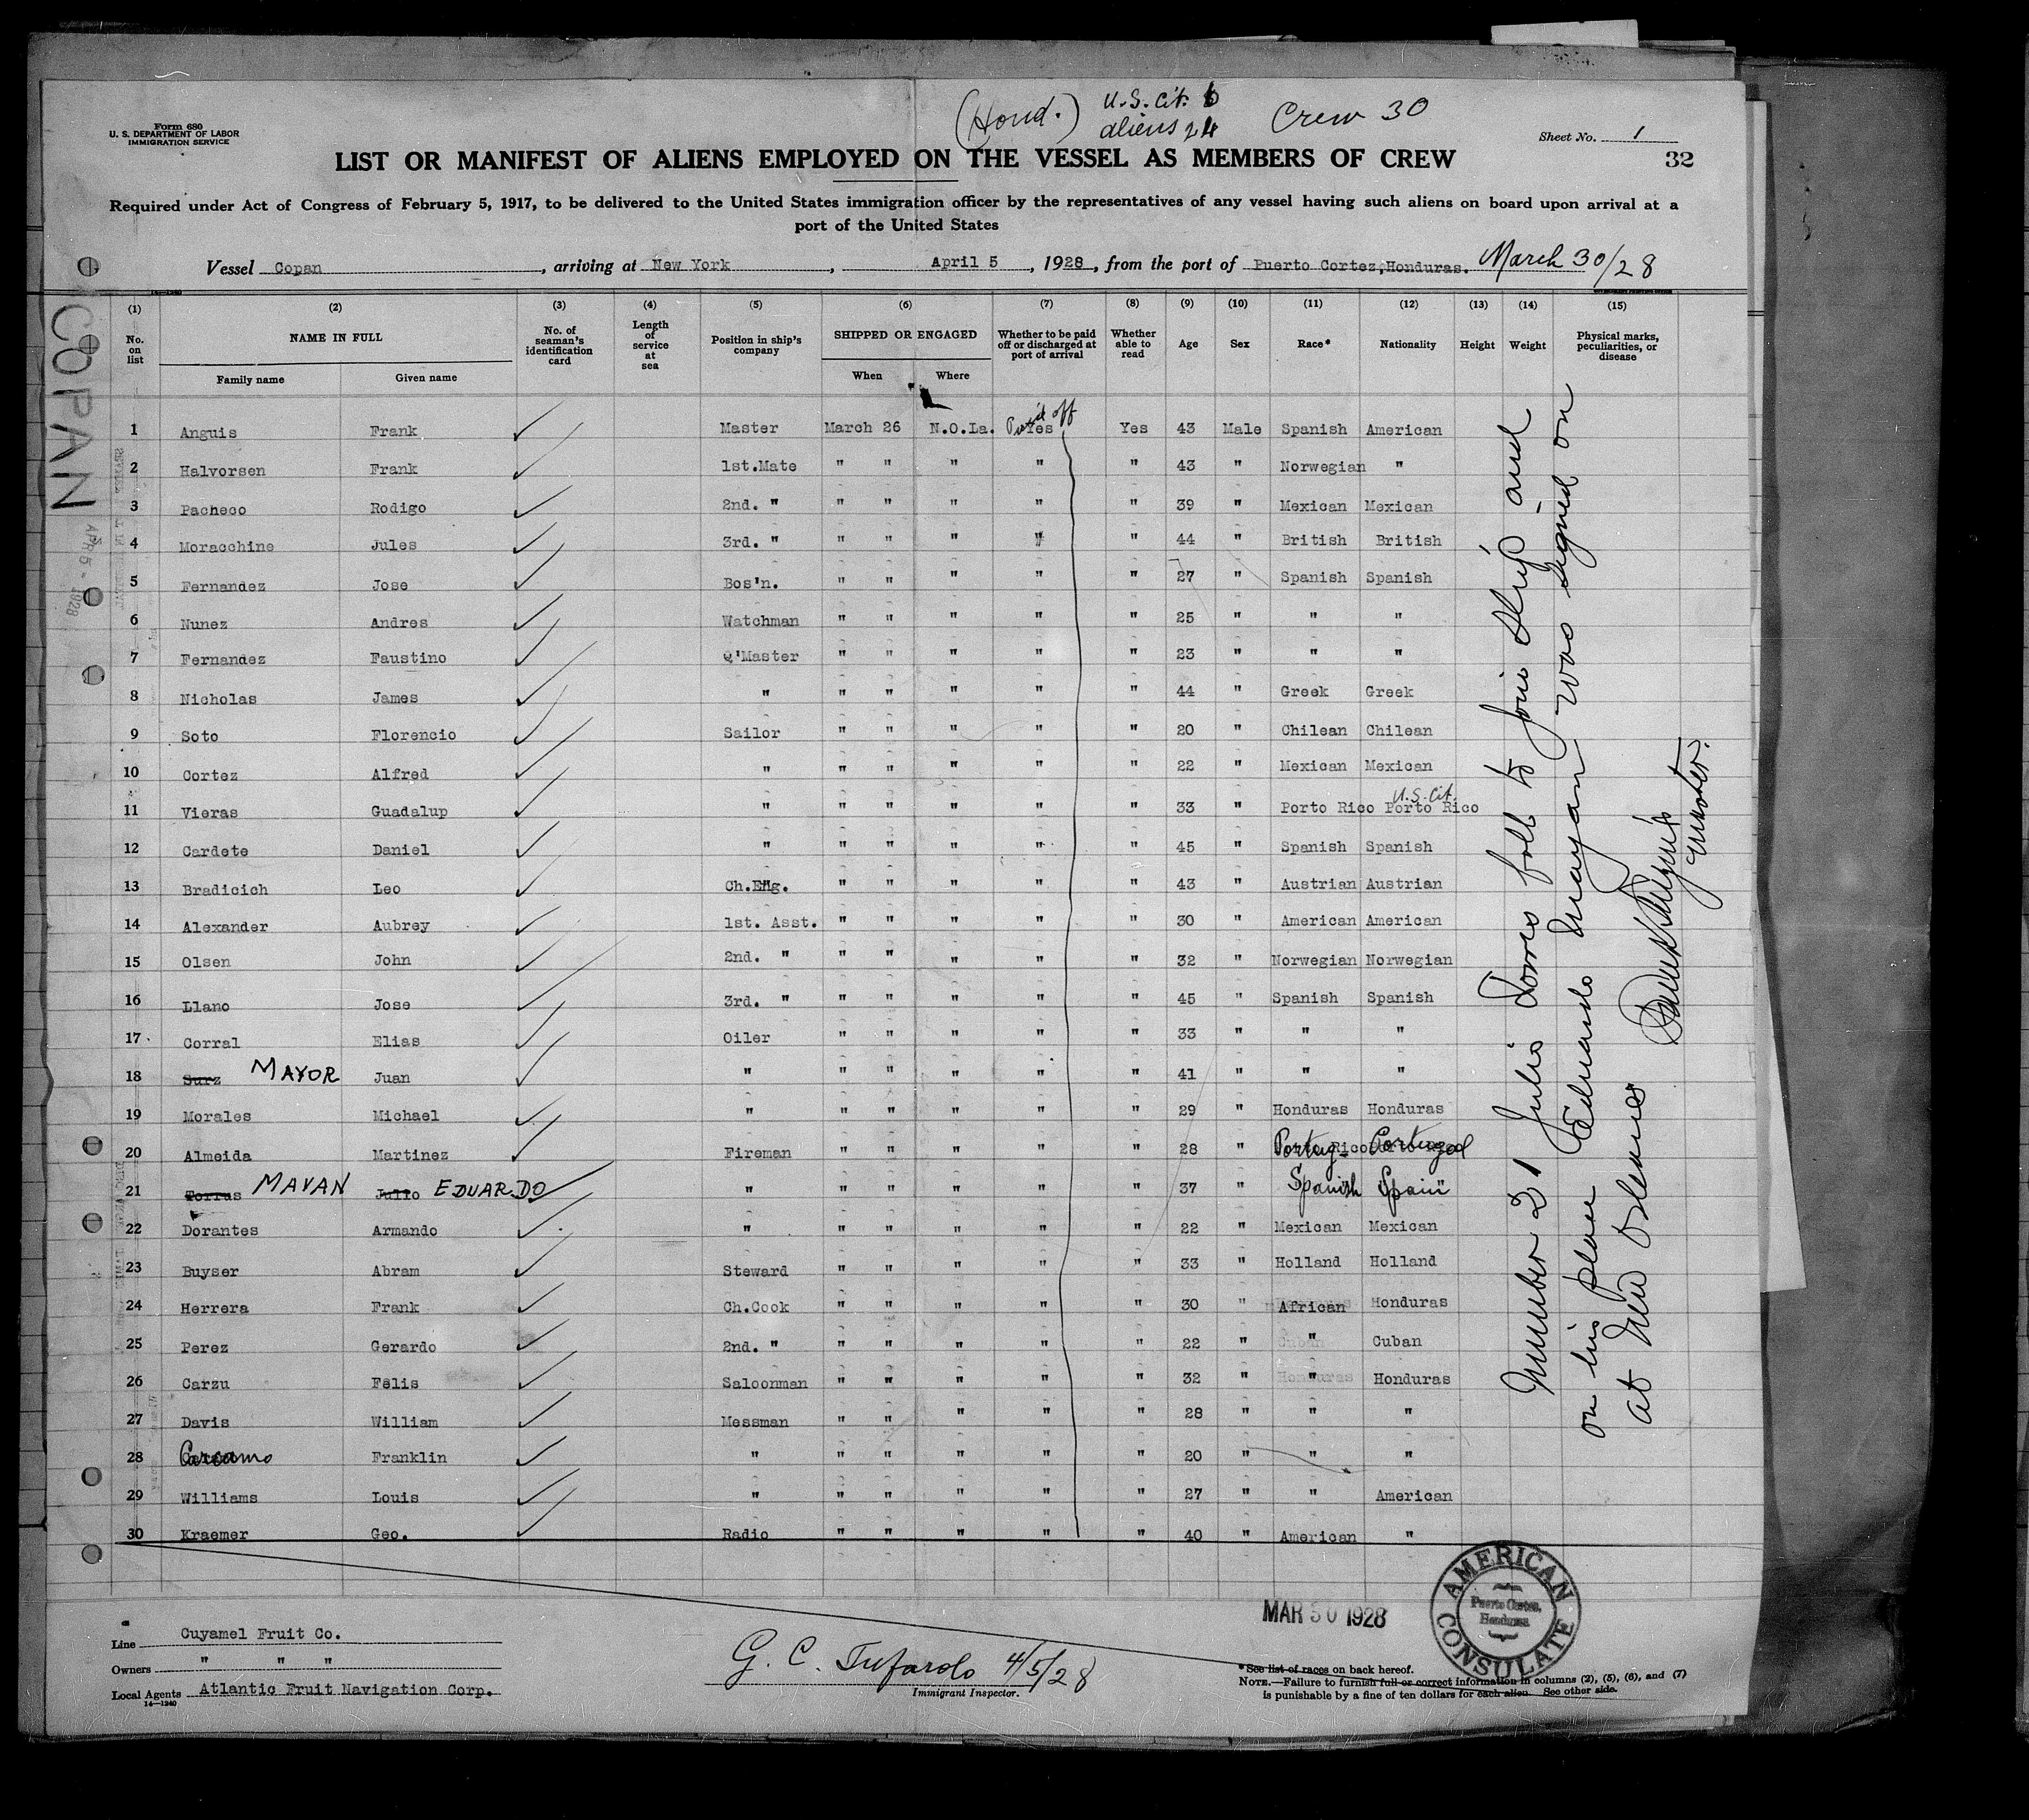 (Hond.) U.S. Cit. 6 Crew 30
aliens 24
Form 680
U. S. DEPARTMENT OF LABOR
IMMIGRATION SERVICE
Sheet No. 1
LIST OR MANIFEST OF ALIENS EMPLOYED ON THE VESSEL AS MEMBERS OF CREW
32
Required under Act of Congress of February 5, 1917, to be delivered to the United States immigration officer by the representatives of any vessel having such aliens on board upon arrival at a
port of the United States
Vessel Copan, arriving at New York, April 5, 1928, from the port of Puerto Cortez, Honduras. March 30/28
(1) (2) (3) (4) (5) (6) (7) (8) (9) (10) (11) (12) (13) (14) (15)
No. on list NAME IN FULL No. of seaman's identification card Length of service at sea Position in ship's company SHIPPED OR ENGAGED Whether to be paid off or discharged at port of arrival Whether able to read Age Sex Race* Nationality Height Weight Physical marks, peculiarities, or disease
Family name Given name When Where
1 Anguis Frank Master March 26 N.O.La. Yes Paid off Yes 43 Male Spanish American
2 Halvorsen Frank 1st.Mate " " " " " 43 " Norwegian "
3 Pacheco Rodigo 2nd. " " " " " " 39 " Mexican Mexican
4 Moracchine Jules 3rd. " " " " " " 44 " British British
5 Fernandez Jose Bos'n. " " " " " 27 " Spanish Spanish
6 Nunez Andres Watchman " " " " " 25 " " "
7 Fernandez Faustino Q'Master " " " " " 23 " " "
8 Nicholas James " " " " " " 44 " Greek Greek
9 Soto Florencio Sailor " " " " " 20 " Chilean Chilean
10 Cortez Alfred " " " " " " 22 " Mexican Mexican
U.S. Cit.
11 Vieras Guadalup " " " " " " 33 " Porto Rico Porto Rico
12 Cardete Daniel " " " " " " 45 " Spanish Spanish
13 Bradicich Leo Ch.Eng. " " " " " 43 " Austrian Austrian
14 Alexander Aubrey 1st. Asst. " " " " " 30 " American American
15 Olsen John 2nd. " " " " " " 32 " Norwegian Norwegian
16 Llano Jose 3rd. " " " " " " 45 " Spanish Spanish
17 Corral Elias Oiler " " " " " 33 " " "
18 Surz MAYOR Juan " " " " " " 41 " " "
19 Morales Michael " " " " " " 29 " Honduras Honduras
20 Almeida Martinez Fireman " " " " " 28 " Portug- Portugal
21 Torres MAYAN Julio EDUARDO " " " " " " 37 " Spanish Spain
22 Dorantes Armando " " " " " " 22 " Mexican Mexican
23 Buyser Abram Steward " " " " " 33 " Holland Holland
24 Herrera Frank Ch.Cook " " " " " 30 " African Honduras
25 Perez Gerardo 2nd. " " " " " " 22 " " Cuban
26 Carzu Felis Saloonman " " " " " 32 " " Honduras
27 Davis William Messman " " " " " 28 " " "
28 Carcamo Franklin " " " " " " 20 " " "
29 Williams Louis " " " " " " 27 " " American
30 Kraemer Geo. Radio " " " " " 40 " American "
Number 21 Julio Torres fail to join ship and
on his place Eduardo Mayan was signed on
at New Orleans
Frank Anguis
Master.
COPAN
APR 5 - 1928
MAR 30 1928
AMERICAN CONSULATE
Puerto Cortes,
Honduras
Line Cuyamel Fruit Co.
Owners " " "
Local Agents Atlantic Fruit Navigation Corp.
14—1240
G. C. Tufarolo 4/5/28
Immigrant Inspector.
*See list of races on back hereof.
NOTE.—Failure to furnish full or correct information in columns (2), (5), (6), and (7)
is punishable by a fine of ten dollars for each alien. See other side.